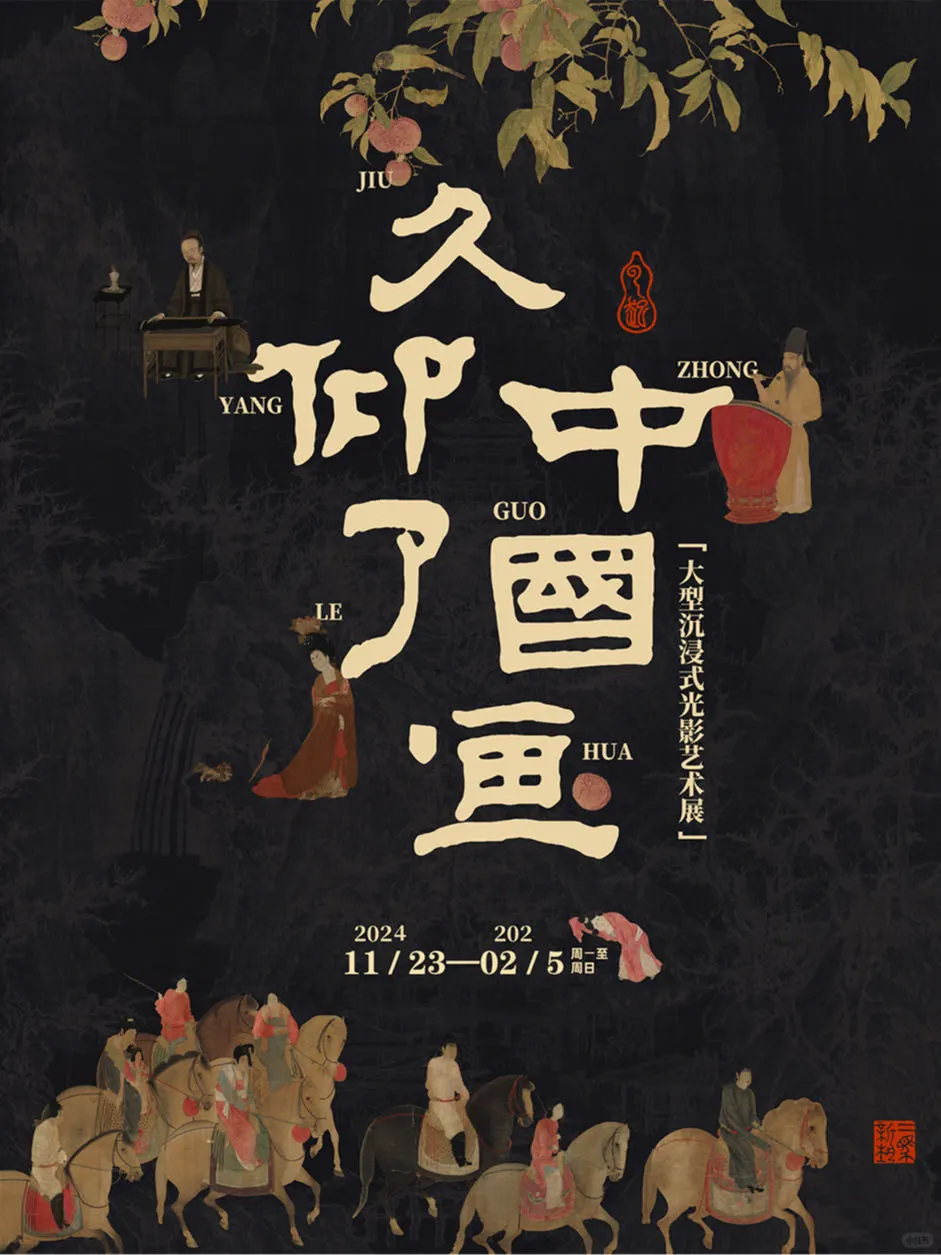 JIU
久
YANG
仰
LE
了
ZHONG
中
GUO
國
HUA
画
「大型沉浸式光影艺术展」
2024 202
11 / 23—02 / 5 周一至
周日